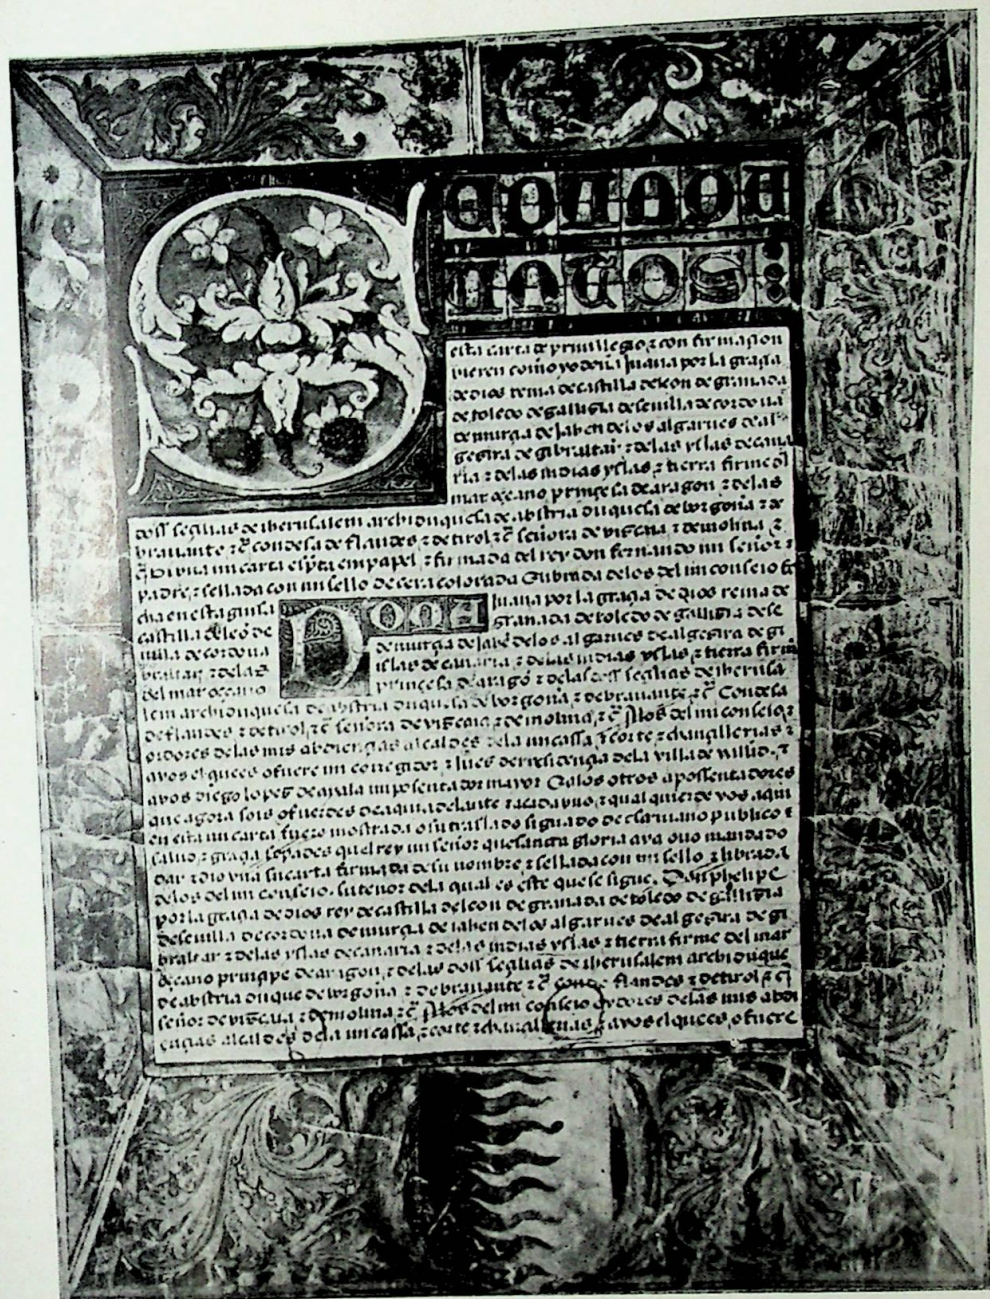 S
EPAN QUA
NTOS :
esta carta de priuillegio z con firmaçion
vieren como yo doña Juana por la graçia
de dios reina de castilla de leon de granada
de toledo de gallizia de seuilla de cordoua
de murçia de Jahen delos algarues de al
gezira de gibraltar z delas yslas de cana
ria z delas indias yslas z tierra firme del
mar oçeano prinçesa de aragon z delas
doss seçilias de iherusalem archiduquesa de abstria duquesa de borgoña z de
brauante zc condesa de flandes z de tirol zc señora de vizcaya z de molina z
vi vna mi carta escpta en papel z firmada del rey don fernando mi señor z
padre z sellada con mi sello de cera colorada z librada delos del mi conseio
cha en esta guisa DOÑA Juana por la graçia de dios reina de
castilla de leon de granada de toledo de gallizia de se
uilla de cordoua de murçia de Jahe delos algarues de algezira de gi
braltar z delas islas de canaria z delas indias yslas z tierra firme
del mar oçeano prinçesa de arago z delas doss seçilias de iherusa
lem archiduquesa de abstria duquesa de borgoña z de brauante zc Condesa
de flandes z de tirol zc señora de vizcaya z de molina zc Alos del mi conseio z
oidores delas mis abdiençias alcaldes dela mi cassa z corte z chançillerias z
avos el que es o fuere mi corregidor z Jues de residençia dela villa de vallid z
avos diego lopez de ayala mi posentador mayor z alos otros apossentadores
que agora sois o fuerdes de aqui adelante z a cada vno z qual quier de vos a qui
en esta mi carta fuere mostrada o su traslado signado de escriuano publico
salud z graçia sepades quel rey mi señor que santa gloria aya ouo mandado
dar z dio vna su carta firmada de su nombre z sellada con su sello z librada
delos del mi conseio su tenor dela qual es este que se sigue. Don phelipe
por la graçia de dios rey de castilla de leon de granada de toledo de gallizia
de seuilla de cordoua de murçia de iahen delos algarues de algezira de gi
braltar z delas yslas de canaria z delas indias yslas z tierra firme del mar
oçeano prinçipe de aragon z delas doss seçilias de iherusalem archiduque
de abstria duque de borgoña z de brauante zc conde flandes z de tirol zc
señor de vizcaya z de molina zc Alos del mi conseio oydores delas mis abdi
ençias alcaldes dela mi cassa z corte z chançillerias z avos el que es o fuere